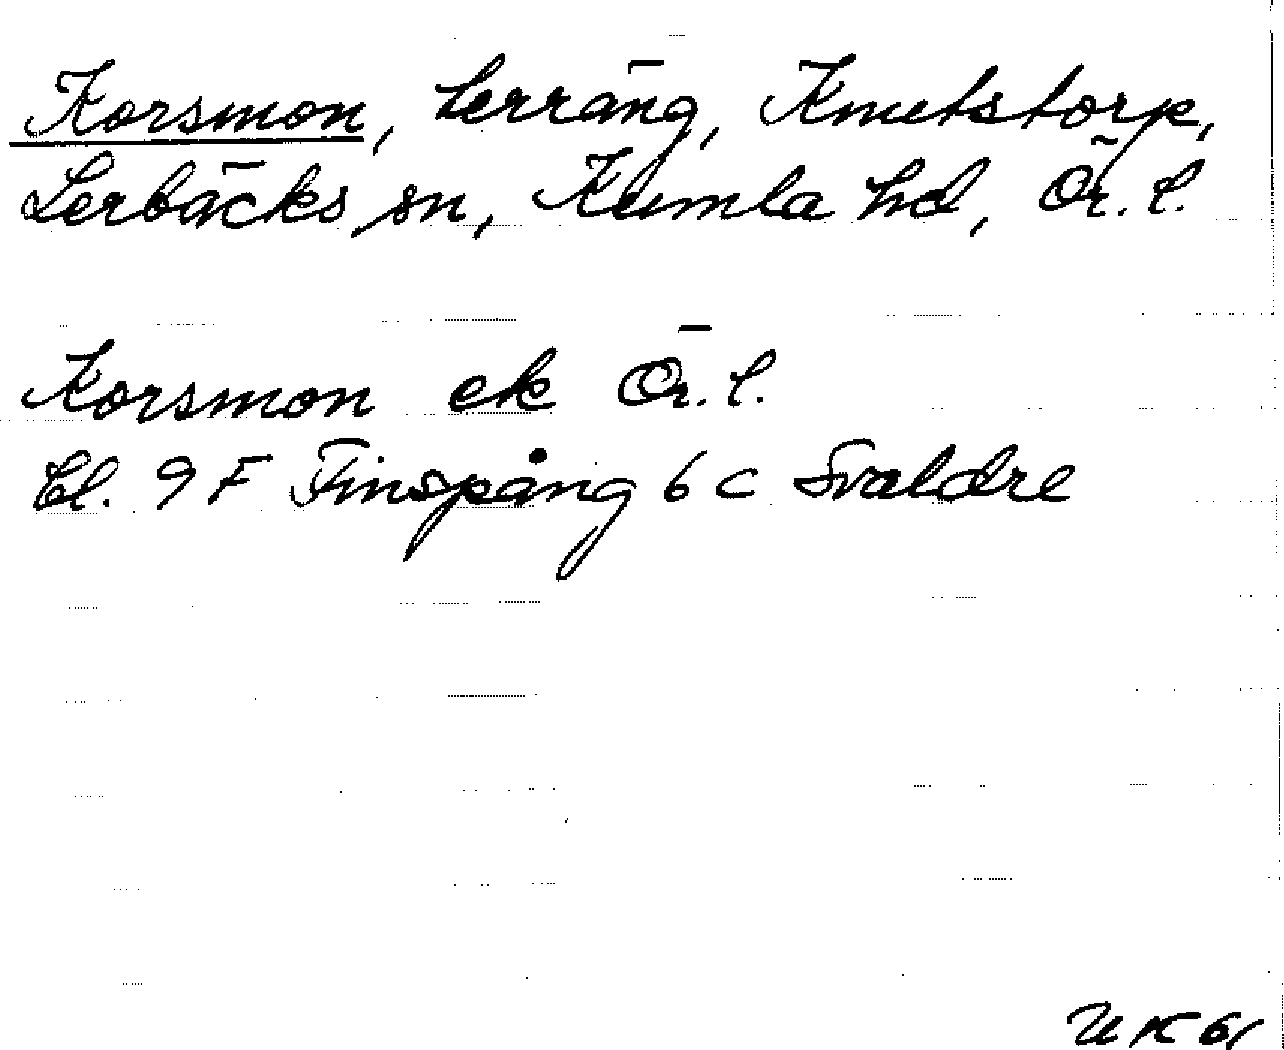 Korsmon, Lerräng, Knutstorp,
Lerbäcks sn, Kumla hd, Ör. l.
Korsmon ek Ör. l.
Bl. 9 F Finspång 6 c Svaldre
UK 61